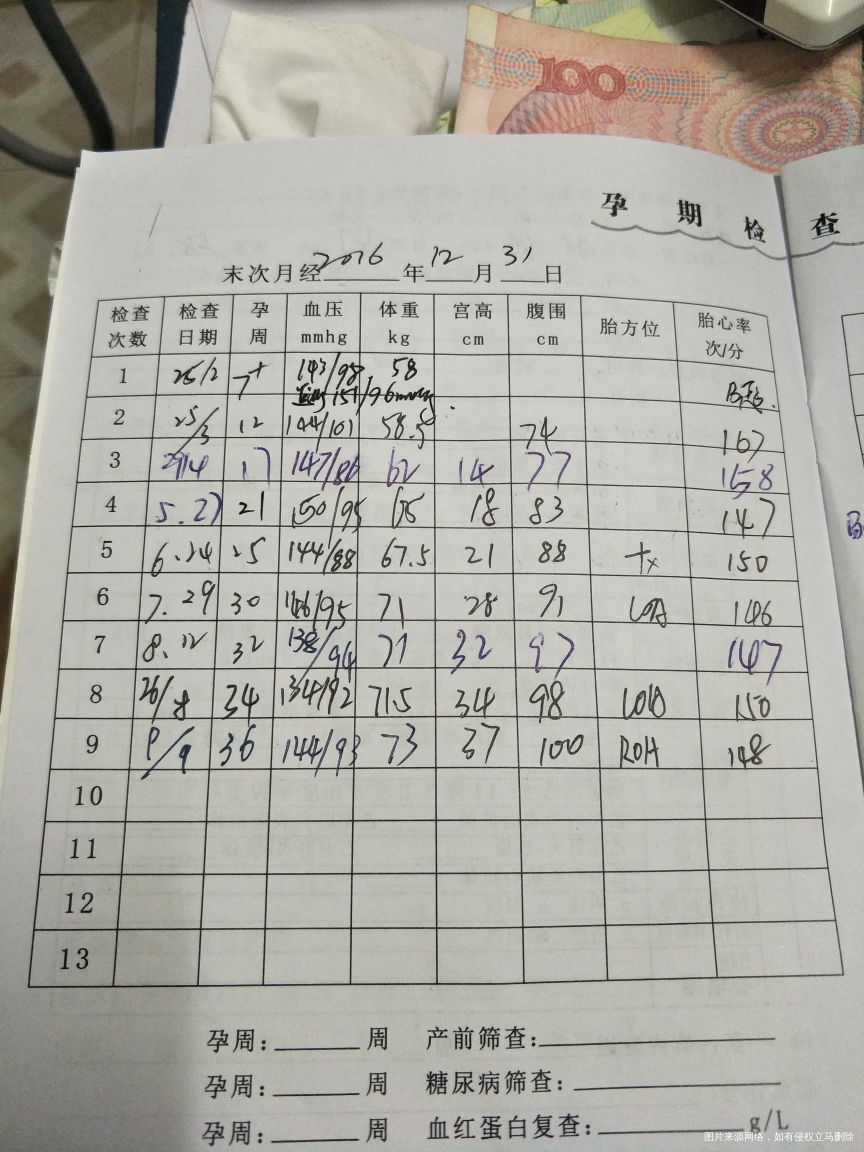 100
孕期检查
末次月经2016年12月31日
检查次数 检查日期 孕周 血压mmhg 体重kg 宫高cm 腹围cm 胎方位 胎心率次/分
1 25/2 7+ 143/98 58
151/96mmHg
2 25/3 12 144/101 58.5 74 167
3 17 147/86 62 14 77 158
4 5.27 21 150/95 65 18 83 147
5 6.24 25 144/88 67.5 21 88 150
6 7.29 30 146/95 71 28 91 LOA 146
7 8.12 32 138/94 71 32 97 147
8 26/8 34 134/92 71.5 34 98 LOA 150
9 9/9 36 144/93 73 37 100 ROA 148
10
11
12
13
孕周：周 产前筛查：
孕周：周 糖尿病筛查：
孕周：周 血红蛋白复查：g/L
图片来源网络，如有侵权立马删除